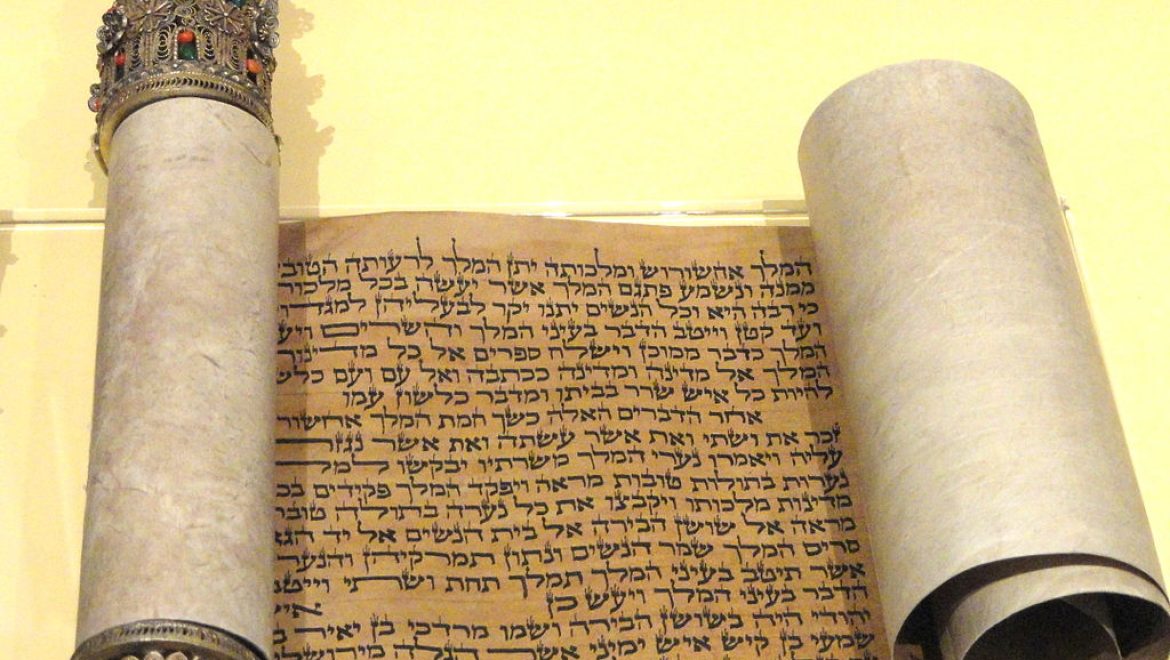 המלך אחשורוש ומלכותה יתן המלך לרעותה הטוב
ממנה ונשמע פתגם המלך אשר יעשה בכל מלכות
כי רבה היא וכל הנשים יתנו יקר לבעליהן למגד
ועד קטן וייטב הדבר בעיני המלך והשרים ויע
המלך כדבר ממוכן וישלח ספרים אל כל מדינות
המלך אל מדינה ומדינה ככתבה ואל עם ועם כלש
להיות כל איש שרר בביתו ומדבר כלשון עמו
אחר הדברים האלה כשך חמת המלך אחשור
זכר את ושתי ואת אשר עשתה ואת אשר נגזר
עליה ויאמרו נערי המלך משרתיו יבקשו למל
נערות בתולות טובות מראה ויפקד המלך פקידים בכ
מדינות מלכותו ויקבצו את כל נערה בתולה טובת
מראה אל שושן הבירה אל בית הנשים אל יד הגא
סריס המלך שמר הנשים ונתון תמרקיהן והנער
אשר תיטב בעיני המלך תמלך תחת ושתי וייטב
הדבר בעיני המלך ויעש כן
איש
יהודי היה בשושן הבירה ושמו מרדכי בן יאיר ב
שמעי בן קיש איש ימיני אשר הגלה מירושל